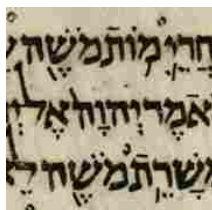 חֲרֵי מוֹת מֹשֶׁה
אמֶר יְהוָה אֶל יְ
שָׁרֵת מֹשֶׁה לֵ